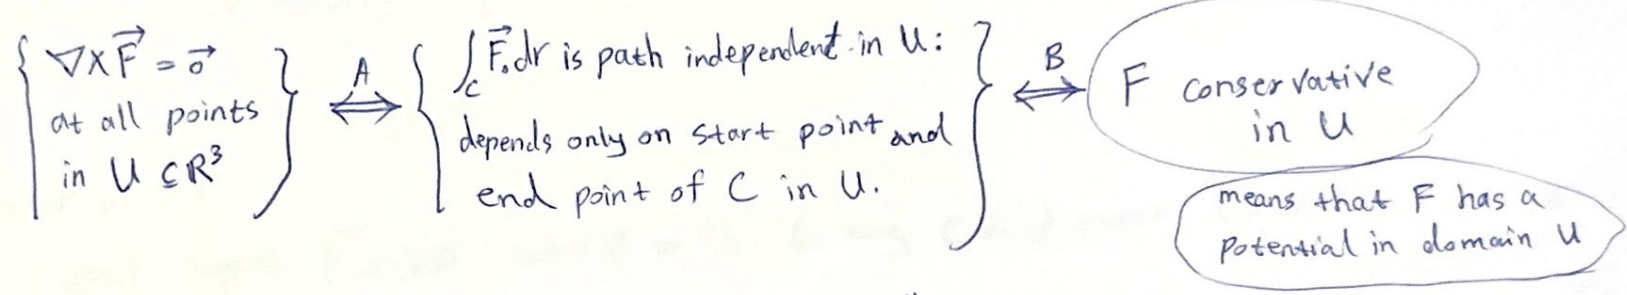 ∇×F⃗ = 0⃗
at all points
in U ⊆ R³
A
⟺
∫_C F⃗.dr is path independent in U:
depends only on start point and
end point of C in U.
B
⟺
F conservative
in U
means that F has a
potential in domain U